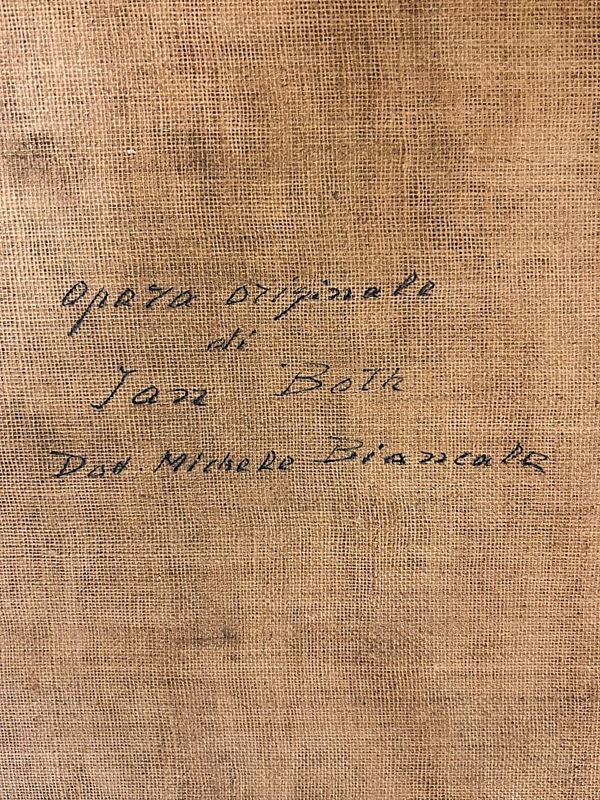 opera originale
di
Jan Both
Dott. Michele Biancale